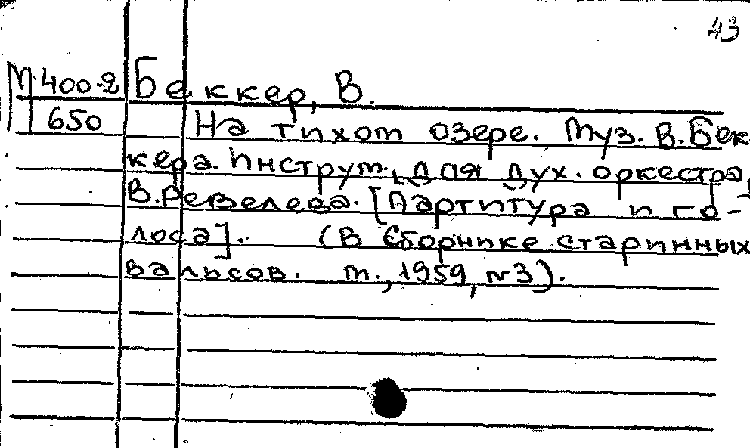 43
М.400-2 Беккер, В.
650 На тихом озере. Муз. В.Бек-
кера. Инструм. для дух. оркестра
В.Ревелева. [Партитура и го-
лоса]. (В Сборнике старинных
вальсов. М., 1959, №3).